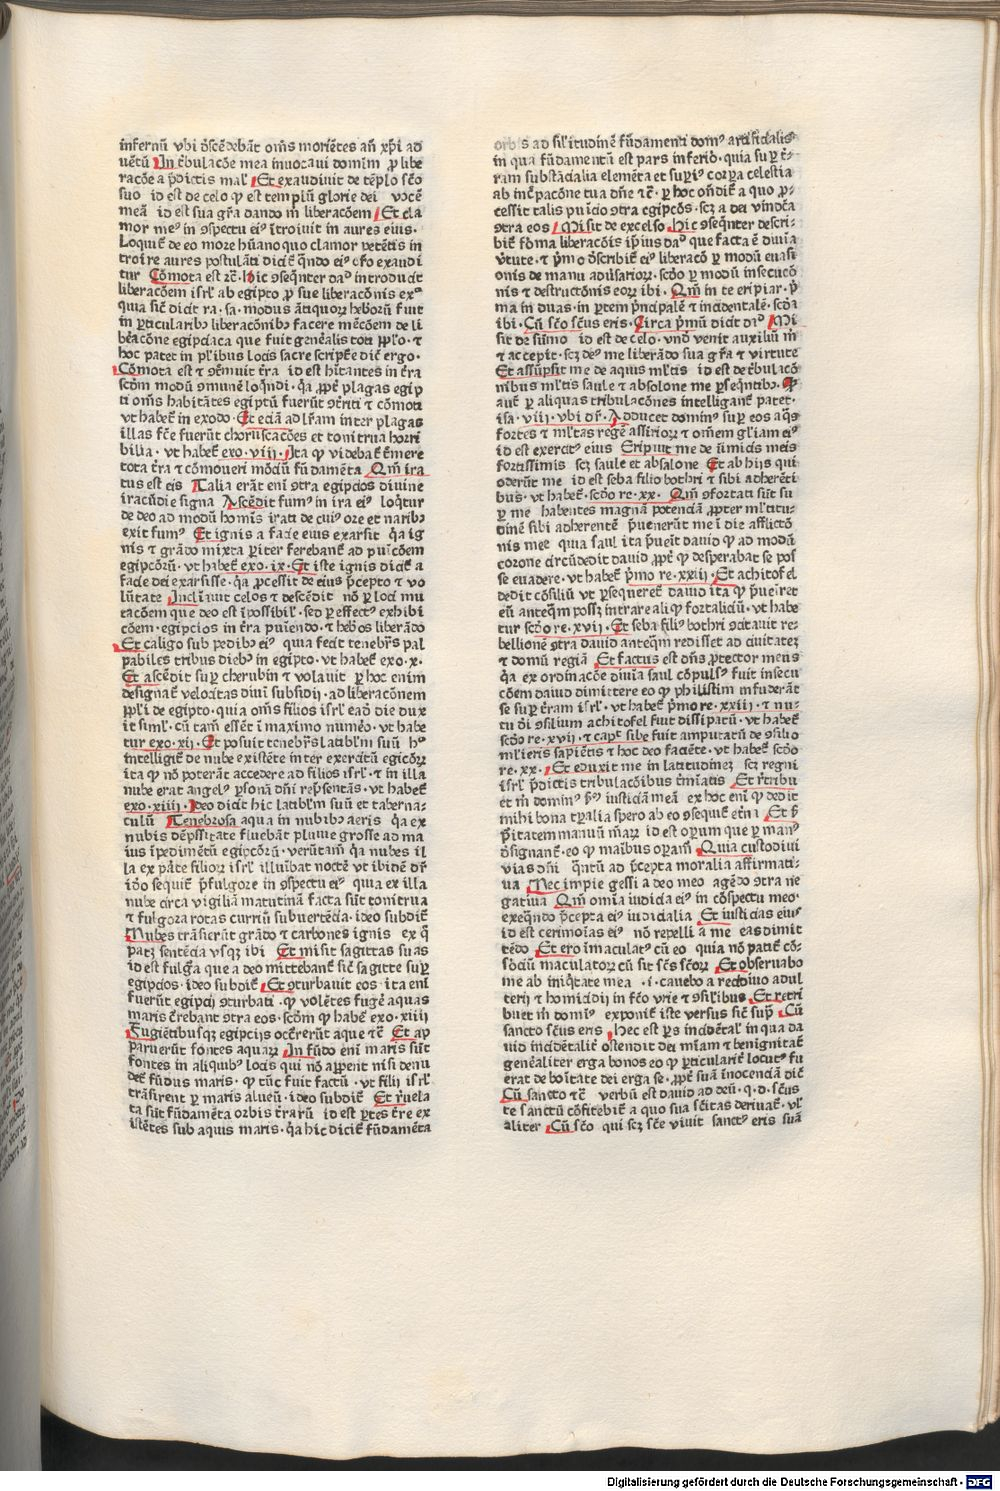 infernū vbi ꝺ̄scēdebāt om̄s moriētes añ xp̄i ad
uētū In t̄bulacōe mea inuocaui domim̄ ꝓ libe
racōe a p̄dictis mal̓ Et exaudiuit de tēplo sc̄o
suo id est de celo ꝙ est tempiū glorie dei vocē
meā id est sua gr̄a dando m̄ liberacōem Et cla
mor meꝰ in ꝯspectu eiꝰ ītroiuit in aures eius·
Loquit̄ de eo more hūano quo clamor petētis in
troire aures postulāti dicit̄ qn̄do eiꝰ exaudi
tur Cōmota est ⁊c̄· hic ꝯseqn̄ter daꝺ introducit
liberacōem isrl̓ ab egipto ꝓ sue liberacōnis exº
quia sic̄ dicit ra· sa· modus ātiquoꝝ heboꝝ fuit
in ꝑticularibꝰ liberacōnibꝰ facere mēcōem de li
beacōne egipciaca que fuit gen̄alis toti ppl̓o· ⁊
hoc patet in pl̓ibus locis sacre script̄e dic̄ ergo·
Cōmota est ⁊ ꝯt̄muit t̄ra id est hītantes in t̄ra
scōm modū ꝯmunē loqn̄di· qꝛ ꝓpt̄ plagas egip
ti om̄s habitātes egiptū fuerūt ꝯt̄riti ⁊ cōmoti
vt habet̄ in exodo· Et eciā ad lr̄am inter plagas
illas fc̄e fuerūt choruscacōes et tonitrua horri
bilia· vt habet̄ exo· viij· Ita ꝙ videbat̄ t̄mere
tota t̄ra ⁊ cōmoueri mōciū fūdamēta Qm̄ ira
tus est eis Talia erāt enī ꝯtra egipcios diuine
iracūdie signa Ascēdit fumꝰ in ira eiꝰ loqt̄ur
de deo ad modū homīs irati de cuiꝰ ore et naribꝰ
exit fumꝰ Et ignis a facie eius exarsit qꝛ ig
nis ⁊ grādo mixta ꝑiter ferebant̄ ad puīcōem
egipcōrū· vt habet̄ exo· ix· Et iste ignis dicit̄ a
facie dei exarsisse· qꝛ ꝓcessit de eius p̄cepto ⁊ vo
lūtate Inclīauit celos ⁊ descēdit nō ꝑ loci mu
tacōem que deo est īpossibil̓· sed ꝑ effectꝰ exhibi
cōem· egipcios in t̄ra puīendo· ⁊ heb̄os liberādo
Et caligo sub pedibꝰ eiꝰ quia fecit tenebr̄s pal
pabiles tribus diebꝰ in egipto· vt habet̄ exo· x·
Et ascēdit suꝑ cherubin ⁊ volauit ꝑ hoc enim
designat̄ velocitas diuī subsidij· ad liberacōnem
ppl̓i de egipto· quia om̄s filios isrl̓ eaō die dux
it siml̓· cū tam̄ essēt ī maximo numēo· vt habe
tur exo· xij· Et posuit tenebr̄s latibl̓m suū hº
intelligit̄ de nube existēte inter exercitū egicōꝝ
ita ꝙ nō poterāt accedere ad filios isrl̓· ⁊ in illa
nube erat angelꝰ ꝑsonā dn̄i rep̄sentās· vt habet̄
exo· xiiij· Ideo dicit hic latibl̓m suū et taberna⸗
culū Tenebrosa aqua in nubibꝰ aeris qꝛ ex
nubis dēpssitate fluebāt pluuie grosse ad ma
ius īpedimētū egipcōꝝ· verūtam̄ qꝛ nubes il
la ex pte filioꝝ isrl̓ illuībat noctē vt ibidē dr̄
iō sequit̄ p̄fulgore in ꝯspectu eiꝰ quia ex illa
nube circa vigiliā matutinā facta sūt tonitrua
⁊ fulgora rotas curriū subuertēcia· ideo subdit̄
Nubes trāsierūt grādo ⁊ carbones ignis ex ꝗ̄
patꝫ sentēcia vsqꝫ ibi Et misit sagittas suas
id est fulgr̄a que a deo mittebant̄ sic̄ sagitte suꝑ
egipcios· ideo subdit̄ Et ꝯturbauit eos· ita enī
fuerūt egipcij ꝯturbati· ꝙ volētes fugē aquas
maris c̄rebant ꝯtra eos· scōm ꝙ habet̄ exo· xiiij
Fugiētibusqꝫ egipcijs occr̄erūt aque ⁊c̄ Et ap
paruerūt fontes aquaꝝ In fūdo enī maris sūt
fontes in aliquibꝰ locis qui nō apꝑent nisi denu
det̄ fūdus maris· ꝙ tūc fuit factū· vt filij isrl̓
trāsirent ꝑ maris alueū· ideo subdit̄ Et r̄uela
ta sūt fūdamēta orbis t̄rarū id est ꝑtes t̄re ex
istētes sub aquis maris· qꝛ hic dicit̄ fūdamēta
orbis ad sil̓itudinē fūdamenti domꝰ artificialis·
in qua fūdamentū est pars inferiō· quia suꝑ t̄⸗
ram substācialia elemēta et suꝑiꝰ corꝑa celestia
ab inc̄pacōne tua dn̄e ⁊c̄· ꝑ hoc on̄dit̄ a quo ꝓ⸗
cessit talis puīcio ꝯtra egipcōs· scꝫ a dei vindc̄a
ꝯtra eos Misit de excelso· hic ꝯseqn̄ter descri⸗
bit̄ foma liberacōis ip̄ius daꝺ que facta ē diuīa
v̄tute· ⁊ p̄mo ꝺ̄scribit̄ eiꝰ liberacō ꝑ modū euasi
onis de manu adūsarioꝝ· scōo ꝑ modū insecucō
nis ⁊ destructōnis eoꝝ ibi· Qm̄ in te eripiar· p̄
ma in duas· in ꝑtem p̄ncipalē ⁊ incidentalē· scōa
ibi· Cū sc̄o sc̄us eris· Circa p̄mū dicit daꝺ Mi
sit de sūmo id est de celo· vnō venit auxiliū m̄
⁊ accepit· scꝫ deꝰ me liberādo sua gr̄a ⁊ virtute
Et assūpsit me de aquis ml̓tis id est de t̄bulacō
nibus ml̓tis saule ⁊ absolone me ꝑseqn̄tibꝰ· Ꝙ
aut̄ ꝑ aliquas tribulacōnes intelligant̄ patet·
isa· viij· vbi dr̄· Adducet dominꝰ suꝑ eos aq̄s
fortes ⁊ ml̓tas regē assirioꝝ ⁊ om̄em gl̓iam eiꝰ
id est exercit̄ eius Eripuit me de īimicis meis
fortissimis scꝫ saule et absalone Et ab hijs qui
oderūt me id est seba filio bothri ⁊ sibi adherēti
bus· vt habet̄· scōo re· xx· Qm̄ ꝯfortati sūt su
ꝑ me habentes magnā potenciā ꝓpter ml̓titu⸗
dinē sibi adherentē p̄uenerūt me ī die afflictō
nis mee quia saul ita p̄ueīt dauid ꝙ ad modū
corone circūdedit dauid ꝓpt̄ ꝙ desperabat se pos
se euadere· vt habet̄ p̄mo re· xxiij· Et achitofel
dedit cōsiliū vt ꝑsequeret̄ dauid ita ꝙ p̄ueīret
eū anteqm̄ possꝫ intrare aliꝙ fortaliciū· vt habe
tur scōo re· xvij· Et seba filiꝰ bothri ꝯcitauit re⸗
bellionē ꝯtra dauid anteqm̄ redisset ad ciuitatez
⁊ domū regiā Et factus est dn̄s ꝓtector meus
qꝛ ex ordinacōe diuīa saul cōpulsꝰ fuit insecu
cōem dauid dimittere eo ꝙ philistim īnfuderāt
se suꝑ t̄ram isrl̓· vt habet̄ p̄mo re· xxiij· ⁊ nu⸗
tu di ꝯsilium achitofel fuit dissipatū· vt habet̄
scōo re· xvij· ⁊ capt̄ sibe fuit amputatū de ꝯsilio
ml̓ieris sapiētis ⁊ hoc deo faciēte· vt habet̄ scōo
re· xx· Et eduxit me in latitudinez scꝫ regni
isrl̓ p̄dictis tribulacōibus t̄miatis Et r̄tribu
et m̄ dominꝰ iusticiā meā ex hoc enī ꝙ dedit
mihi bona tꝑalia spero ab eo ꝯsequi et̄ni Et p̄
p̄itatem manuū māꝝ id est oꝑum que ꝑ manꝰ
ꝺ̄signant̄· eo ꝙ maībus oꝑam̄ Quia custodiui
vias dn̄i qn̄tū ad p̄cepta moralia affirmati⸗
ua Nec impie gessi a deo meo agēdo ꝯtra ne
gatiua Qm̄ omīa iudicia eiꝰ in cōspectu meo·
exeqn̄do p̄cepta eiꝰ iudicialia Et iusticias eius
id est cerimoīas eiꝰ nō repelli a me eas dimit
tēdo Et ero īmaculatꝰ cū eo quia nō patit̄ cō⸗
sociū maculatoꝝ cū sit sc̄s sc̄oꝝ Et obseruabo
me ab iniqt̄ate mea ·i· cauebo a recidiuo adul
terij ⁊ homicidij in fc̄o vrie ⁊ ꝯsil̓ibus Et retri
buet m̄ domiꝰ exponit̄ iste versus sic̄ sup̄ Cū
sancto sc̄us eris Hec est ꝑs incidētal̓ in qua da
uid incidētalit̄ ostendit dei mīam ⁊ benignitat̄
gen̄aliter erga bonos eo ꝙ ꝑticularit̄ locutꝰ fu
erat de boītate dei erga se· ꝓpt̄ suā inocenciā dic̄
Cū sancto ⁊c̄ verbū est dauid ad deū· q· d· sc̄us
te sanctū cōfitebit̄ a quo sua sc̄itas deriuat̄· vl̓
aliter Cū sc̄o qui scꝫ sc̄e viuit sanctꝰ eris suā
Digitalisierung gefördert durch die Deutsche Forschungsgemeinschaft · DFG